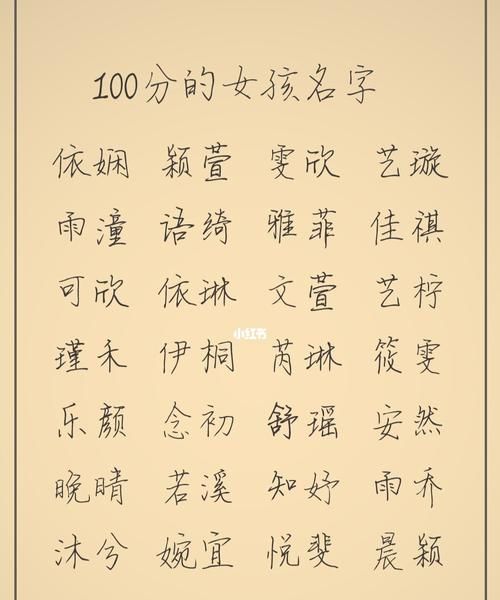 100分的女孩名字
依娴 颖萱 雯欣 艺璇
雨潼 语绮 雅菲 佳祺
可欣 依琳 文萱 艺柠
小红书
瑾禾 伊桐 芮琳 筱雯
乐颜 念初 舒瑶 安然
晚晴 若溪 知妤 雨乔
沐兮 婉宜 悦斐 晨颖